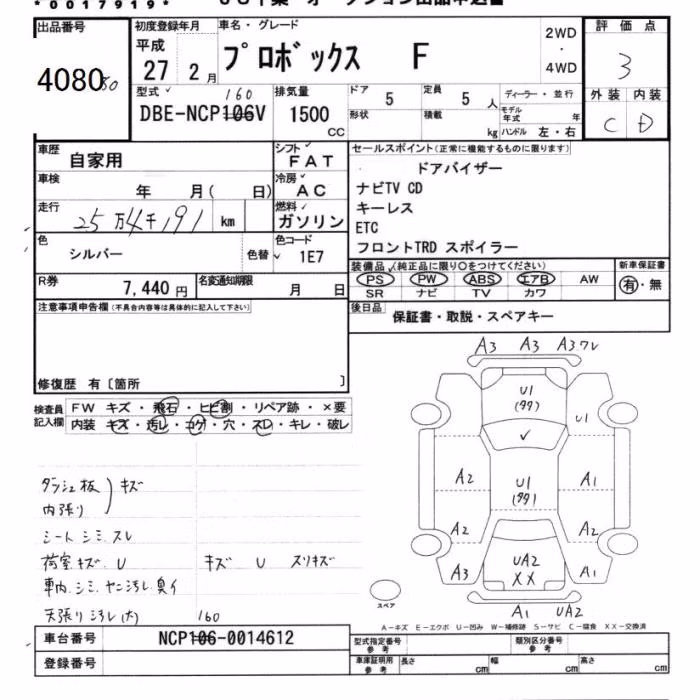 *0017919*
出品番号
408050
初度登録年月
平成
27 2月
車名・グレード
プロボックス F
2WD
・
4WD
評価点
3
外装 内装
C D
型式
160
DBE-NCP106V
排気量
1500
CC
ドア 5
定員 5 人
ディーラー・並行
形状
積載 kg
モデル年式 年
ハンドル 左・右
車歴 自家用
シフト FAT
車検 年 月( 日)
冷房 AC
走行 25万4千191 km
燃料 ガソリン
色 シルバー 色替
色コード 1E7
R券 7,440円
名変通知期限 月 日
セールスポイント(正常に機能するものに限ります)
ドアバイザー
ナビTV CD
キーレス
ETC
フロントTRD スポイラー
装備品(純正品に限り○をつけてください)
新車保証書
PS PW ABS エアB AW
有・無
SR ナビ TV カワ
後日品
保証書・取説・スペアキー
注意事項申告欄(不具合内容等は具体的に記入して下さい)
修復歴 有〔箇所 〕
検査員記入欄
FW キズ・飛石・ヒビ割・リペア跡・×要
内装 キズ・汚レ・コゲ・穴・スレ・キレ・破レ
ダッシュ板
内張り
キズ
シートシミ スレ
荷室キズ U キズ U スリキズ
車内シミ ヤニ汚レ 臭イ
天張り汚レ(大)
A3 A3 A3ワレ
U1
(99)
U1
✓
A2 U1 A1
(99)
A2 A2
A3 UA2 A1
XX
A1 UA2
スペア
A−キズ E−エクボ U−凹み W−補修跡 S−サビ C−腐食 XX−交換済
160
車台番号 NCP106-0014612
登録番号
型式指定番号 参考
類別区分番号 参考
車庫証明用 参考
長さ cm 幅 cm 高さ cm